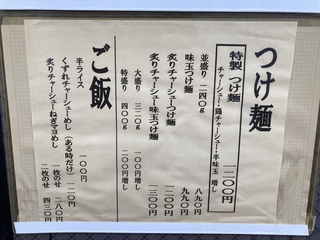 つけ麺
特製 つけ麺 一二〇〇円
チャーシュー・鶏チャーシュー・半味玉 増し
並盛り 二四〇g 八九〇円
味玉つけ麺 九九〇円
炙りチャーシューつけ麺 一二〇〇円
炙りチャーシュー味玉つけ麺 一三〇〇円
大盛り 三〇〇g 一〇〇円増し
特盛り 四〇〇g 二〇〇円増し
ご飯
半ライス 一〇〇円
くずれチャーシューめし(ある時だけ) 一二〇円
炙りチャーシューねぎマヨめし 一枚のせ 二八〇円
二枚のせ 四三〇円